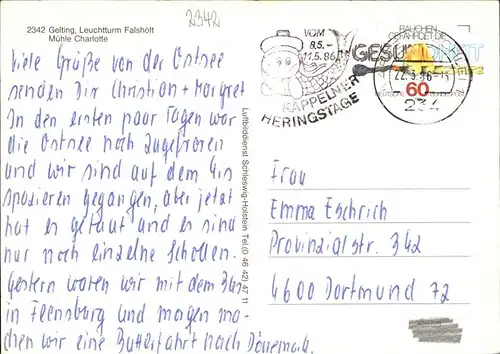 2342
2342 Gelting, Leuchtturm Falshöft
Mühle Charlotte
Viele Grüße von der Ostsee
senden Dir Christian + Margret
In den ersten paar Tagen war
die Ostsee noch zugefroren
und wir sind auf dem Eis
spazieren gegangen, aber jetzt
hat es getaut und es sind
nur noch einzelne Schollen.
Gestern waren wir mit dem Bus
in Flensburg und morgen ma-
chen wir eine Butterfahrt nach Dänemark.
Luftbilddienst Schleswig-Holstein Tel.(0 46 42) 47 11
VOM
8.5.-
11.5.86
KAPPELNER
HERINGSTAGE
RAUCHEN
GEFÄHRDET DIE
GESUNDHEIT
22.3.86-11
60
234
Frau
Emma Eschrich
Provinzialstr. 342
4600 Dortmund 72